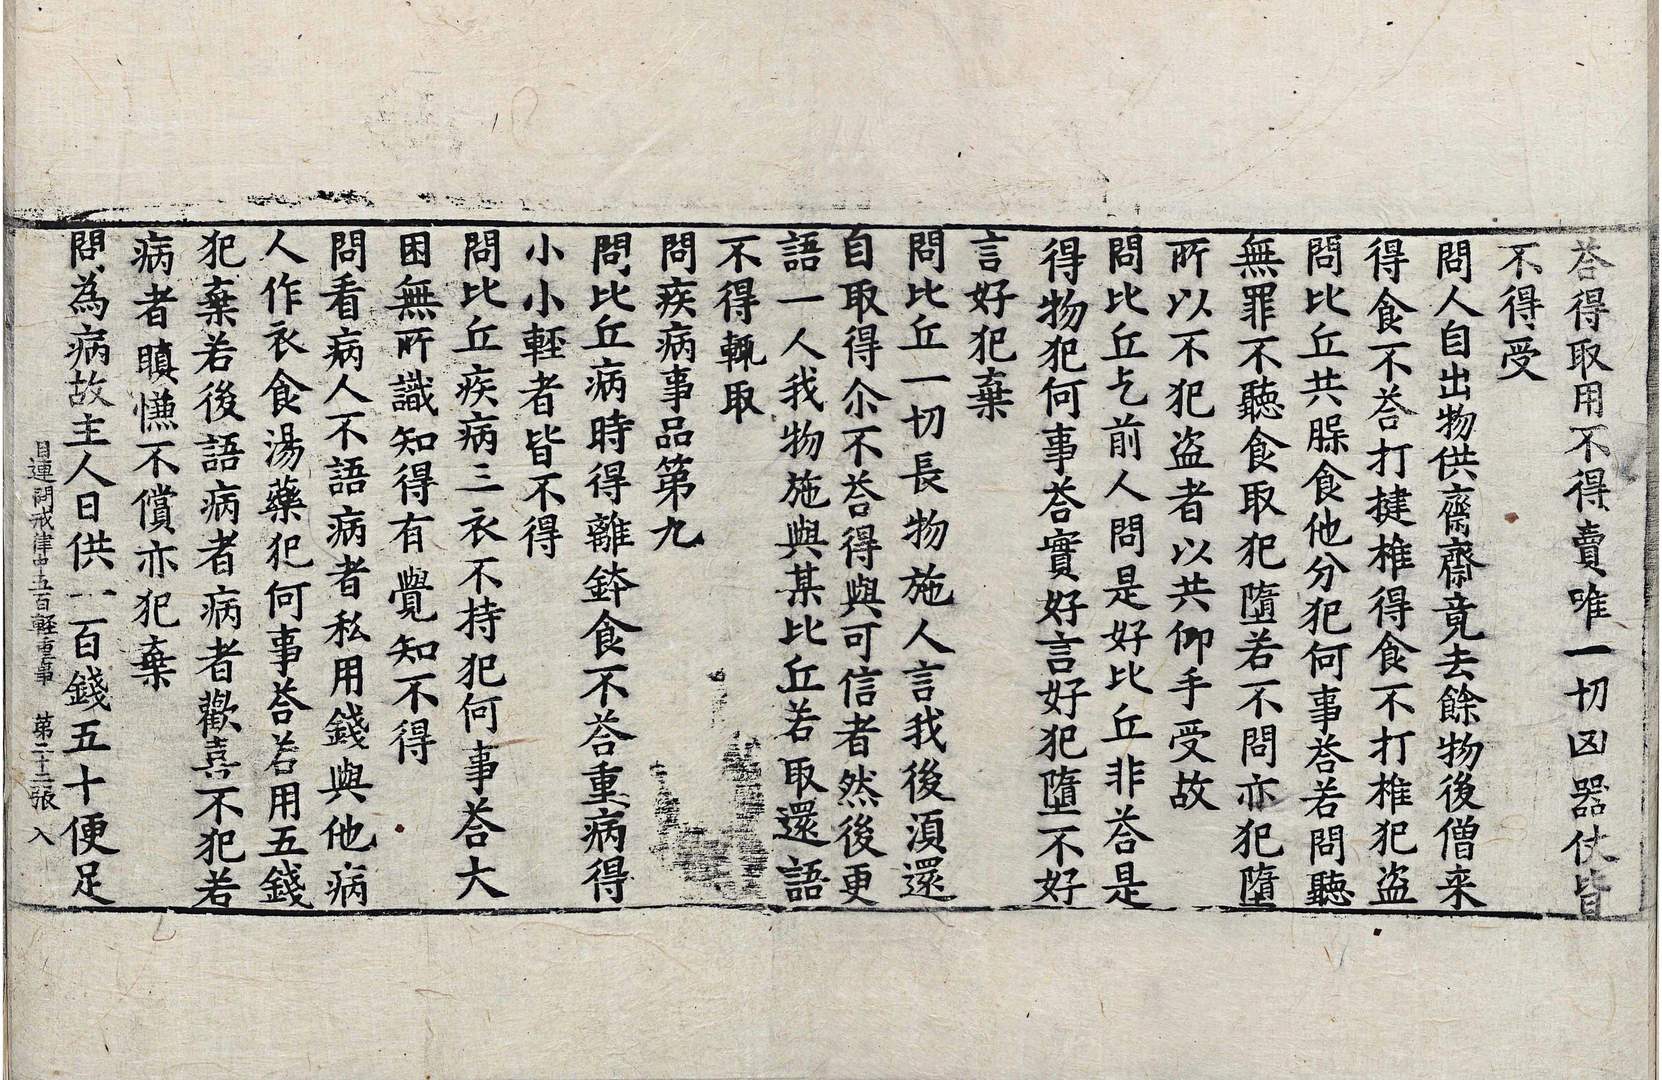 荅得取用不得賣唯一切凶器仗皆
不得受
問人自出物供齋齋竟去餘物後僧來
得食不荅打揵椎得食不打椎犯盜
問比丘共䑛食他分犯何事荅若問聽
無罪不聽食取犯墮若不問亦犯墮
所以不犯盜者以共仰手受故
問比丘乞前人問是好比丘非荅是
得物犯何事荅實好言好犯墮不好
言好犯棄
問比丘一切長物施人言我後須還
自取得尒不荅得與可信者然後更
語一人我物施與某比丘若取還語
不得輒取
問疾病事品第九
問比丘病時得離鉢食不荅重病得
小小輕者皆不得
問比丘疾病三衣不持犯何事荅大
困無所識知得有覺知不得
問看病人不語病者私用錢與他病
人作衣食湯藥犯何事荅若用五錢
犯棄若後語病者病者歡喜不犯若
病者瞋慊不償亦犯棄
問為病故主人日供一百錢五十便足
目連問戒律中五百輕重事 第二十二張 入